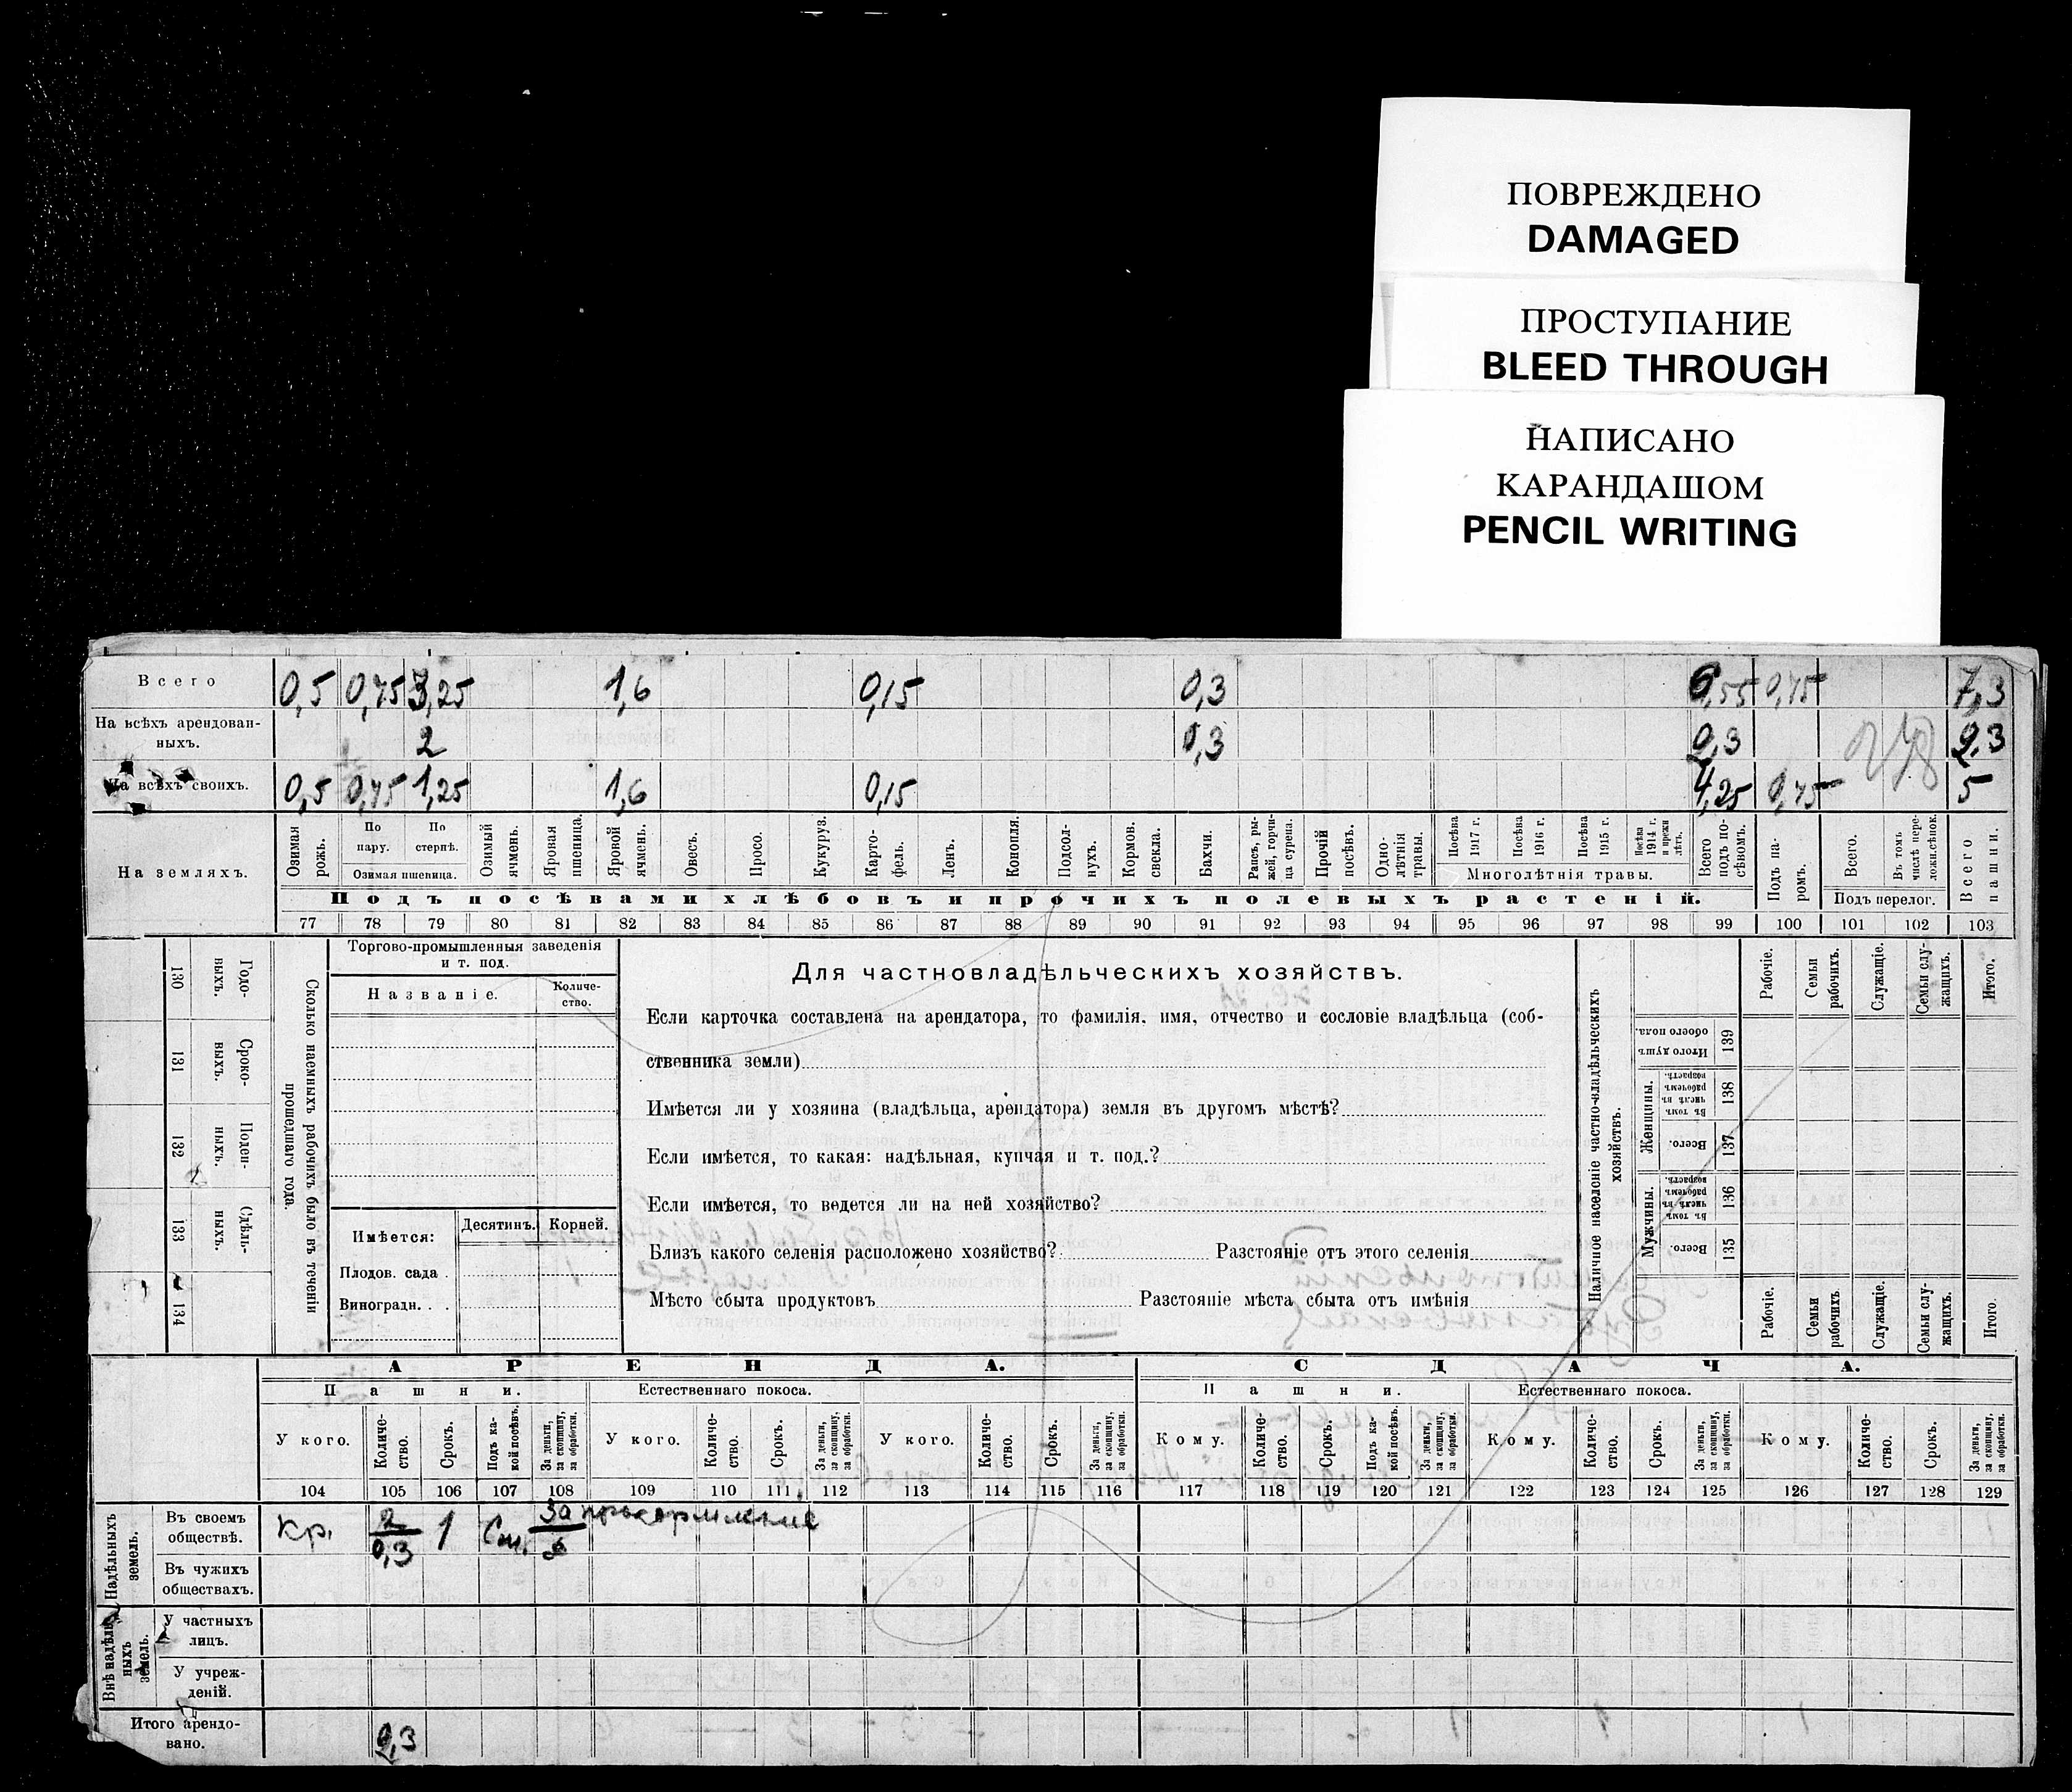 ПОВРЕЖДЕНО
DAMAGED
ПРОСТУПАНИЕ
BLEED THROUGH
НАПИСАНО
КАРАНДАШОМ
PENCIL WRITING
Всего 0,5 0,75 3,25 1,6 0,15 0,3 6,55 0,75 7,3
На всѣхъ арендован-
ныхъ. 2 0,3 2,3 2,3
На всѣхъ своихъ. 0,5 0,75 1,25 1,6 0,15 4,25 0,75 5
На земляхъ.
Озимая рожь.
По пару.
По стернѣ.
Озимая пшеница.
Озимый ячмень.
Яровая пшеница.
Яровой ячмень.
Овесъ.
Просо.
Кукуруз.
Карто-
фель.
Ленъ.
Конопля.
Подсол-
нухъ.
Кормов. свекла.
Бахчи.
Рапсъ, ры-
жей, горчи-
ца сурепа.
Прочій посѣвъ.
Одно-
лѣтнія травы.
Посѣва 1917 г.
Посѣва 1916 г.
Посѣва 1915 г.
Посѣва 1914 г. и прежн лѣтъ.
Многолѣтнія травы.
Всего подъ по-
сѣвомъ.
Подъ па-
ромъ.
Всего.
Въ томъ числѣ пере-
ложн.сѣнок.
Подъ перелог.
Всего пашни.
Подъ посѣвами хлѣбовъ и прочихъ полевыхъ растеній.
77 78 79 80 81 82 83 84 85 86 87 88 89 90 91 92 93 94 95 96 97 98 99 100 101 102 103
130 Годо-
выхъ.
131 Сроко-
выхъ.
132 Поден-
ныхъ.
133 Сдѣль-
ныхъ.
134
Сколько наемныхъ рабочихъ было въ теченіи
прошедшаго года.
Торгово-промышленныя заведенія
и т. под.
Названіе.
Количе-
ство.
Имѣется: Десятинъ. Корней.
Плодов. сада .
Виноградн. . .
Для частновладѣльческихъ хозяйствъ.
Если карточка составлена на арендатора, то фамилія, имя, отчество и сословіе владѣльца (соб-
ственника земли)
Имѣется ли у хозяина (владѣльца, арендатора) земля въ другомъ мѣстѣ?
Если имѣется, то какая: надѣльная, купчая и т. под.?
Если имѣется, то ведется ли на ней хозяйство?
Близъ какого селенія расположено хозяйство? Разстояніе отъ этого селенія
Мѣсто сбыта продуктовъ Разстояніе мѣста сбыта отъ имѣнія
Наличное населеніе частно-владѣльческихъ
хозяйствъ.
Рабочіе.
Семьи рабочихъ.
Служащіе.
Семьи слу-
жащихъ.
Итого.
Итого душъ обоего пола. 139
Женщины.
Въ томъ числѣ въ рабочемъ возрастѣ. 138
Всего. 137
Мужчины.
Въ томъ числѣ въ рабочемъ возрастѣ. 136
Всего. 135
Рабочіе.
Семьи рабочихъ.
Служащіе.
Семьи слу-
жащихъ.
Итого.
АРЕНДА. СДАЧА.
Пашни. Естественнаго покоса. Пашни. Естественнаго покоса.
У кого.
Количе-
ство.
Срокъ.
Подъ ка-
кой посѣвъ.
За деньги, за скопщину, за обработки.
У кого.
Количе-
ство.
Срокъ.
За деньги, за скопщину, за обработки.
У кого.
Количе-
ство.
Срокъ.
За деньги, за скопщину, за обработки.
Кому.
Количе-
ство.
Срокъ.
Подъ ка-
кой посѣвъ.
За деньги, за скопщину, за обработки.
Кому.
Количе-
ство.
Срокъ.
За деньги, за скопщину, за обработки.
Кому.
Количе-
ство.
Срокъ.
За деньги, за скопщину, за обработки.
104 105 106 107 108 109 110 111 112 113 114 115 116 117 118 119 120 121 122 123 124 125 126 127 128 129
Надѣльныхъ земель.
Въ своемъ
обществѣ. Кр. 2 0,3 1 За прокормление
Въ чужихъ
обществахъ.
Внѣ надѣль-
ныхъ земель.
У частныхъ
лицъ.
У учреж-
деній.
Итого арендо-
вано. 2,3